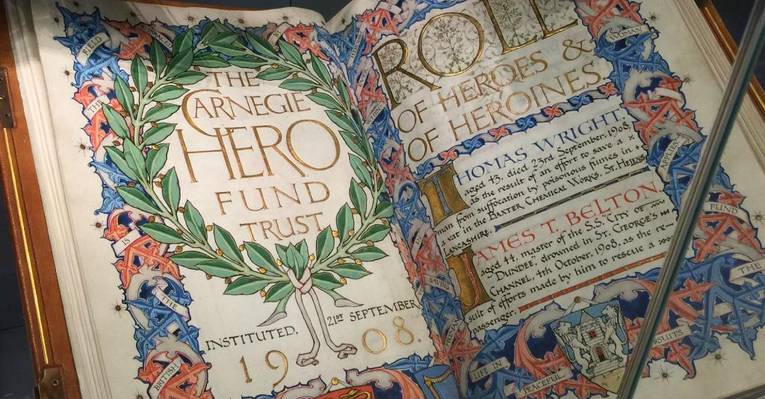 THE
CARNEGIE
HERO
FUND
TRUST
INSTITUTED, 21ST SEPTEMBER
1908.
ROLL
OF HEROES &
OF HEROINES.
THOMAS WRIGHT,
aged 43, died 23rd September, 1908,
as the result of an effort to save a
man from suffocation by poisonous fumes in
a vat in the BAXTER CHEMICAL WORKS, ST. HELENS
LANCASHIRE.
JAMES T. BELTON
aged 44, master of the S.S. "CITY OF
DUNDEE", drowned in ST. GEORGE'S
CHANNEL, 4th October, 1908, as the re-
sult of efforts made by him to rescue a
passenger.
THE
IS
THE
BRITISH
LIFE IN
PEACEFUL
PURSUITS
THE
FUND
WOMAN